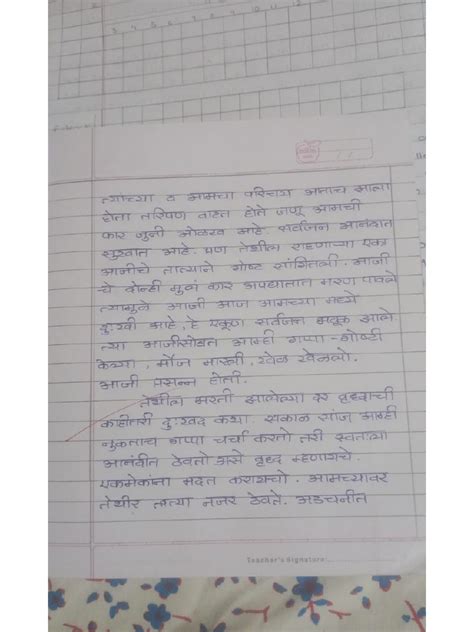 त्यांच्या व आमचा परिचय अनाच झाला
होता तरिपण वाटत होते जणू आमची
फार जुनी ओळख आहे. सर्वजन आनंदात
सुखात आहे. पण तेथील राहणाऱ्या एका
आजीचे तात्याने गोष्ट सांगितली. आजी
चे दोन्ही मुलं कार अपघातात मरण पावले
त्यामुळे आजी आज आमच्या मध्ये
दुःखी आहे, हे ऐकूण सर्वजन भावूक झाले
त्या आजीसोबत आम्ही गप्पा-गोष्टी
केल्या, मौज मारली, खेळ खेळलो.
आजी प्रसन्न होती.
तेथील भरती झालेल्या दर वृद्धाची
काहीतरी दुःखद कथा. सकाळ सांज आम्ही
नुकताच गप्पा चर्चा करतो तरी स्वतःला
आनंदीत ठेवतो असे वृध्द म्हणायचे.
एकमेकांना मदत करायचो. आमच्यावर
तेथीर तात्या नजर ठेवते. अडचनीत
Teacher's Signature: